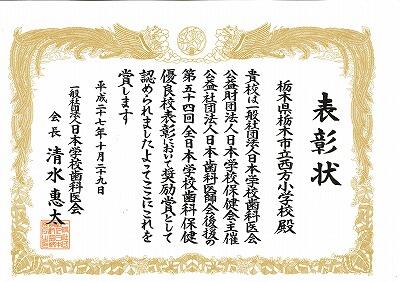 表彰状
栃木県栃木市立西方小学校殿
貴校は一般社団法人日本学校歯科医会
公益財団法人日本学校保健会主催
公益社団法人日本歯科医師会後援の
第五十四回全日本学校歯科保健
優良校表彰において奨励賞として
認められましたよってここにこれを
賞します
平成二十七年十月二十九日
一般社団法人日本学校歯科医会
会長 清水惠太